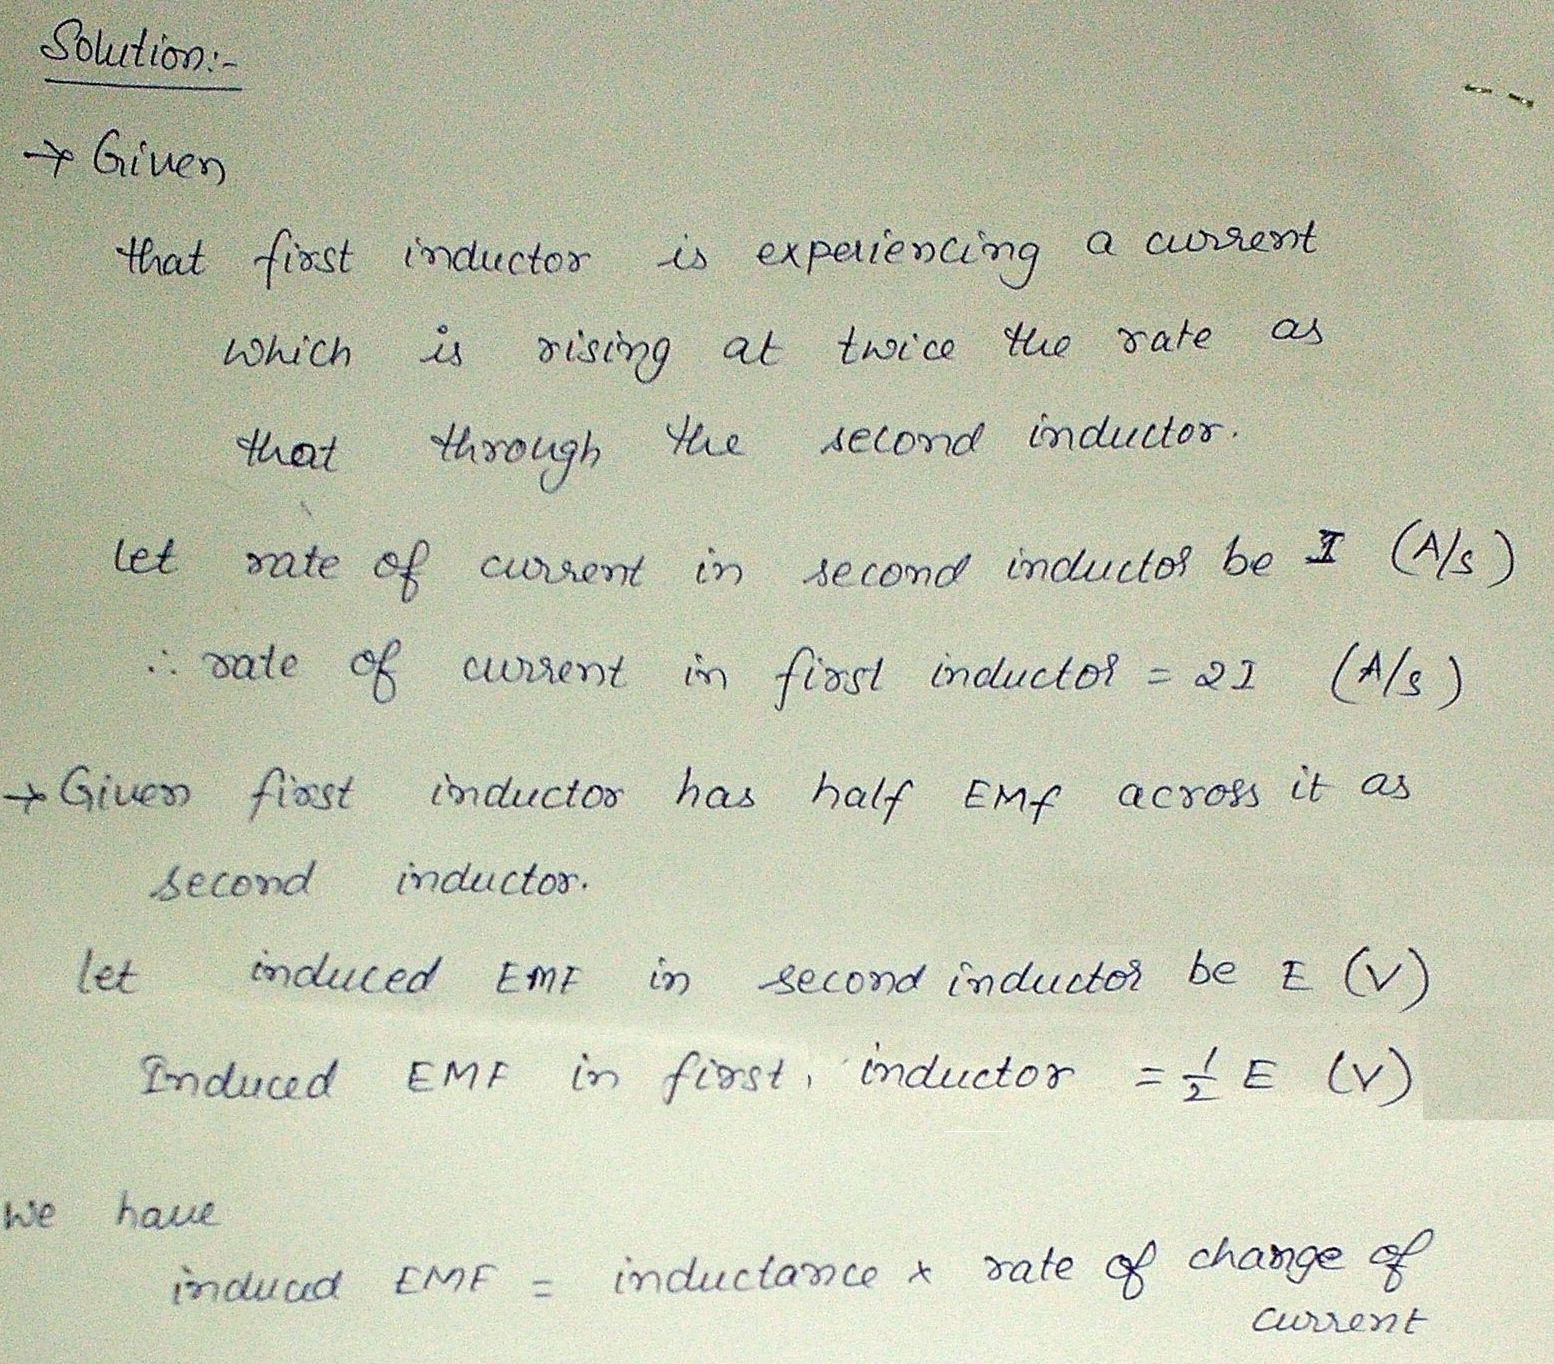 Solution:-
→ Given
that first inductor is experiencing a current
which is rising at twice the rate as
that through the second inductor.
let rate of current in second inductor be I (A/s)
∴ rate of current in first inductor = 2I (A/s)
→ Given first inductor has half EMf across it as
second inductor.
let induced EMF in second inductor be E (V)
Induced EMF in first, inductor = 1/2 E (V)
We have
induced EMF = inductance x rate of change of
current